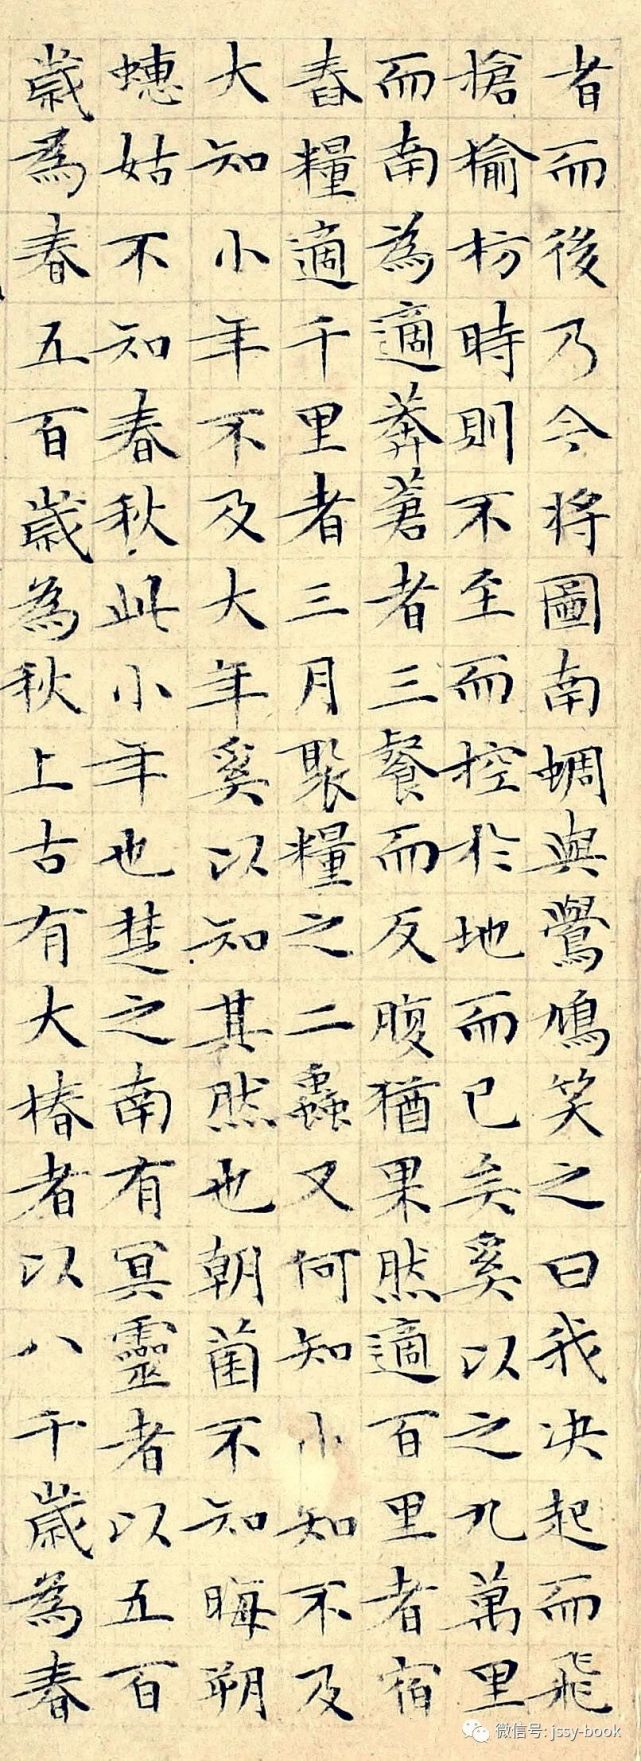 者而後乃今将圖南蜩與鷽鳩笑之曰我决起而飛
槍榆枋時則不至而控於地而已矣奚以之九萬里
而南為適莽蒼者三餐而反腹猶果然適百里者宿
舂糧適千里者三月聚糧之二蟲又何知小知不及
大知小年不及大年奚以知其然也朝菌不知晦朔
蟪姑不知春秋此小年也楚之南有冥靈者以五百
歲為春五百歲為秋上古有大椿者以八千歲為春
微信号: jssy-book